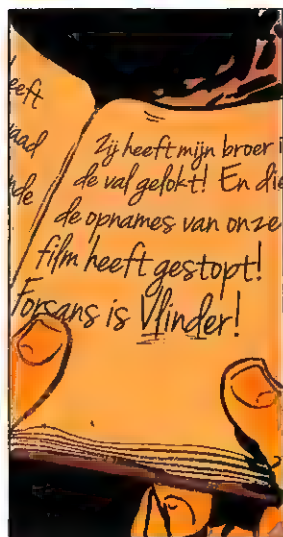 eeft
aad
nde
Zij heeft mijn broer i
de val gelokt! En die
de opnames van onze
film heeft gestopt!
Forsans is Vlinder!